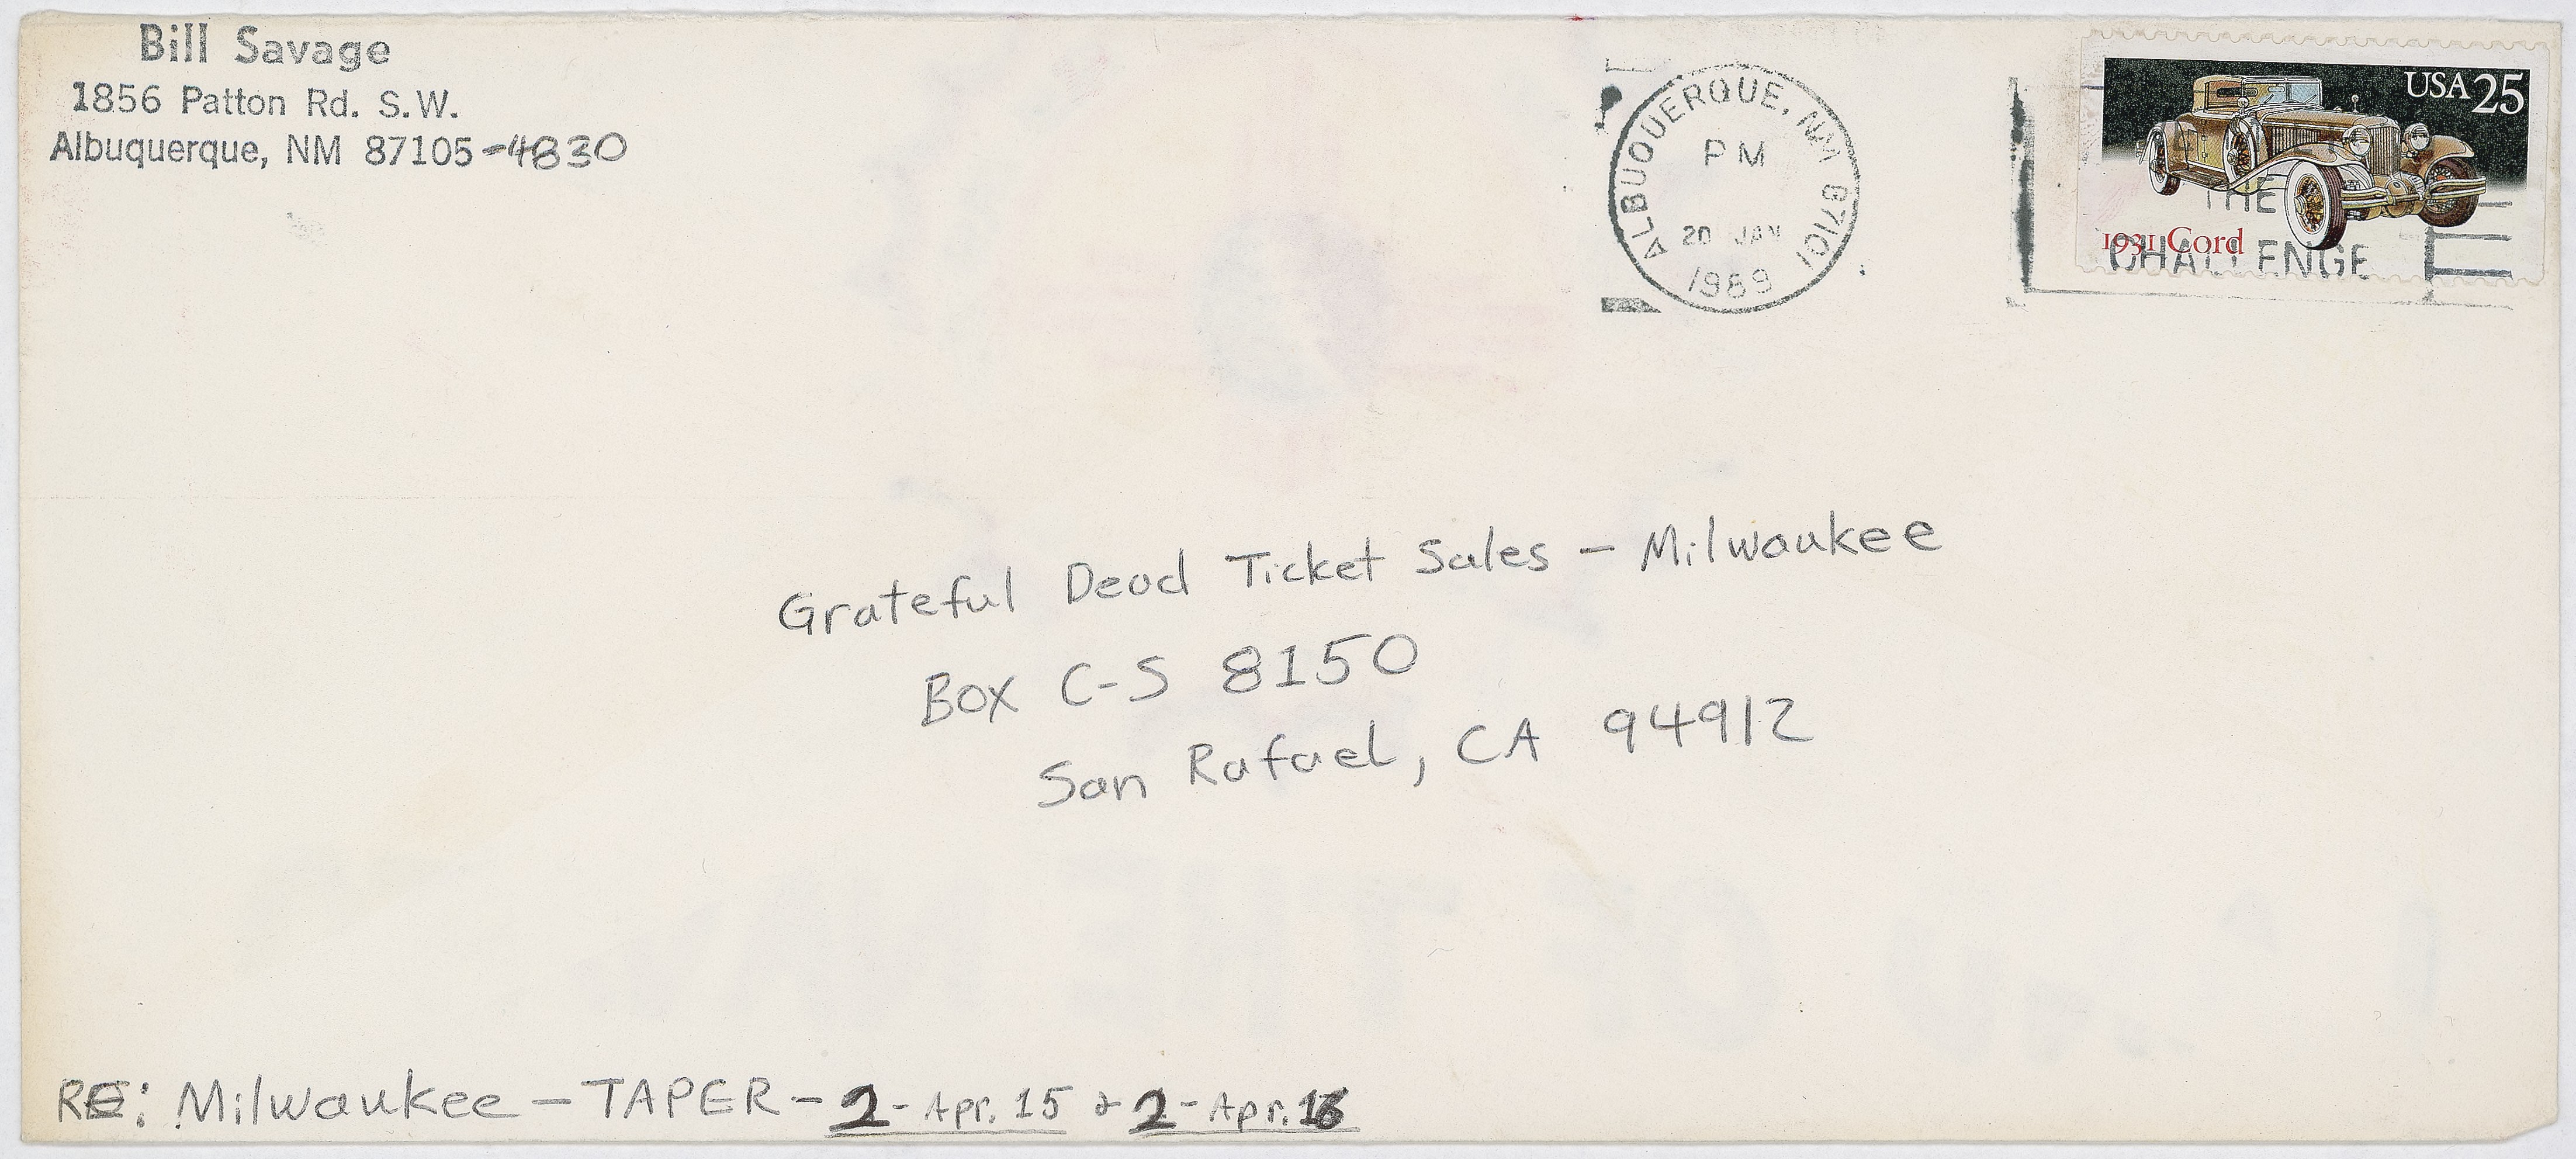 Bill Savage
1856 Patton Rd. S.W.
Albuquerque, NM 87105-4830
ALBUQUERQUE, NM 87101
PM
20 JAN
1989
USA 25
THE
1931 Cord
CHALLENGE
Grateful Dead Ticket Sales - Milwaukee
Box C-S 8150
San Rafael, CA 94912
RE: Milwaukee - TAPER - 2 - Apr. 15 + 2 - Apr. 16